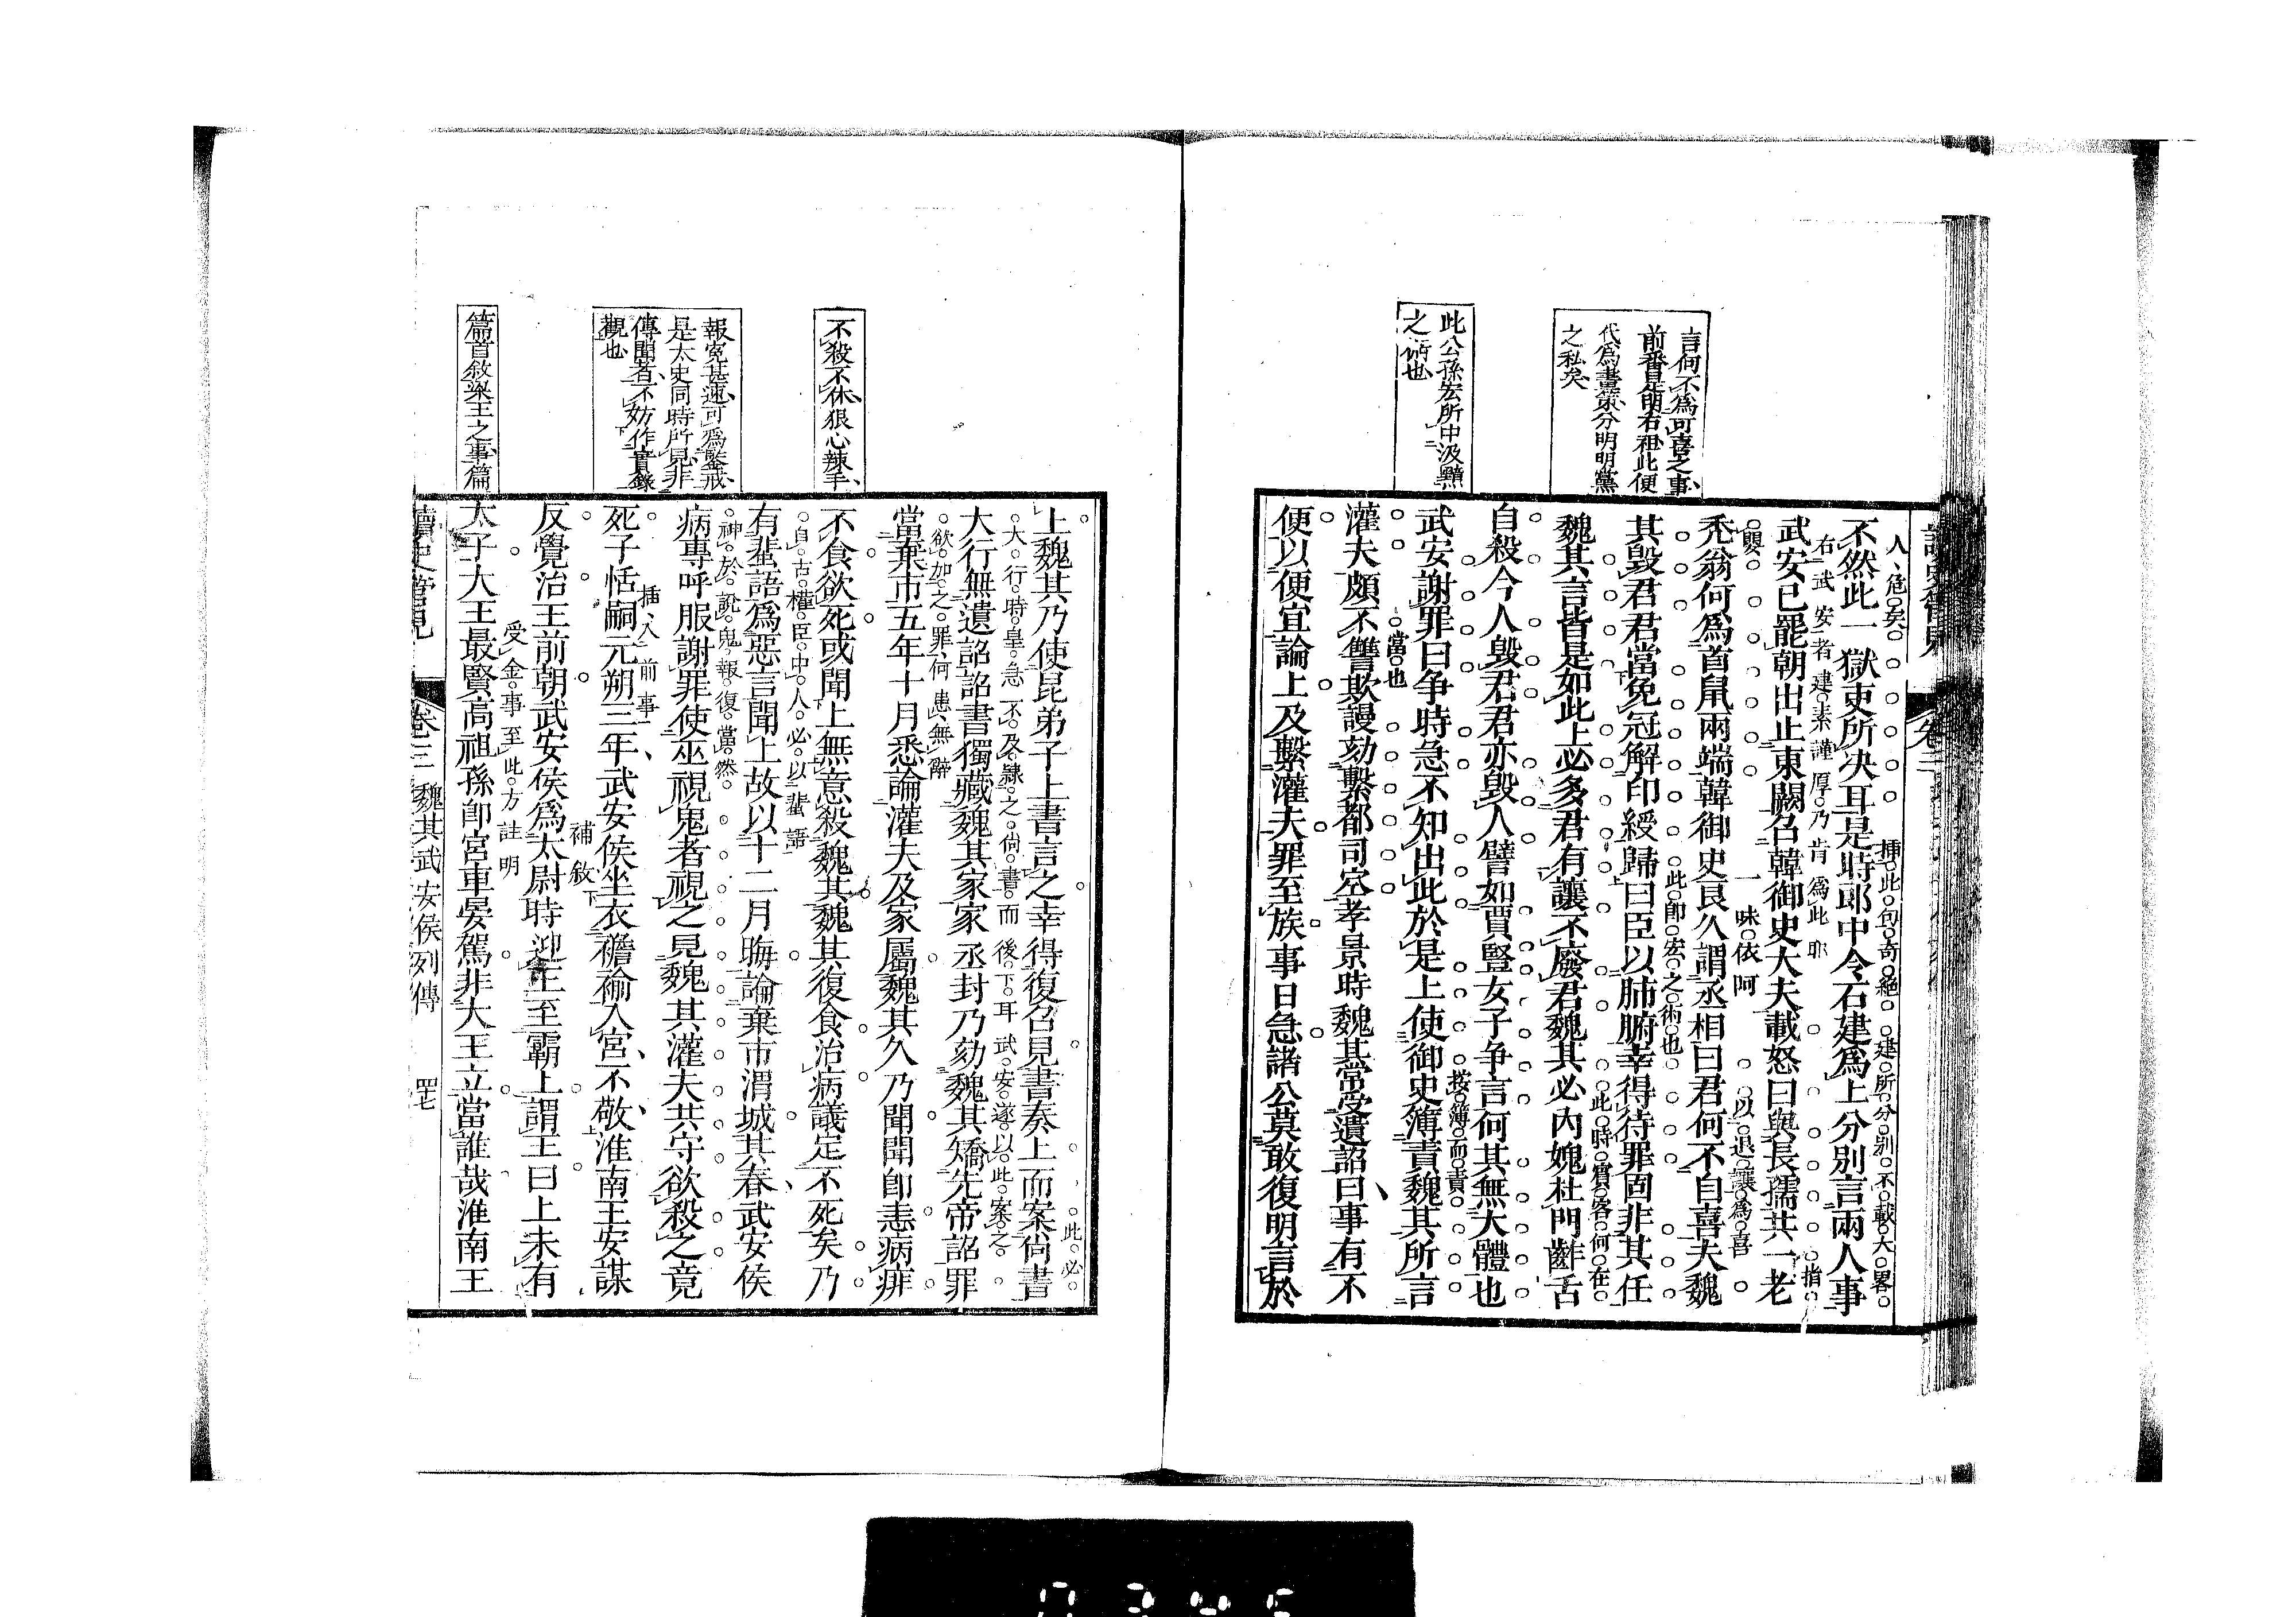 言何不為可喜之事
前番是明右袒此便
代為畫策分明明黨
之私矣
此公孫宏所中汲黯
之術也
人危矣
插此句奇絕 建所分別不載大畧
不然此一獄吏所決耳是時郎中令石建為上分別言兩人事
右武安者建素謹厚乃肯為此耶 指
武安已罷朝出止東闕召韓御史大夫載怒曰與長孺共一老
嬰 一味依阿 以退讓為喜
禿翁何為首鼠兩端韓御史良久謂丞相曰君何不自喜夫魏
此卽宏之術也
其毀君君當免冠解印綬歸曰臣以肺腑幸得待罪固非其任
此時賓客何在
魏其言皆是如此上必多君有讓不廢君魏其必內媿杜門齰舌
自殺今人毀君君亦毀人譬如賈豎女子爭言何其無大體也
按簿而責
武安謝罪曰爭時急不知出此於是上使御史簿責魏其所言
當也
灌夫頗不讐欺謾劾繫都司空孝景時魏其常受遺詔曰事有不
便以便宜論上及繫灌夫罪至族事日急諸公莫敢復明言於
不殺不休狠心辣手
報寃甚速可為鑒戒
是太史同時所見非
傳聞者不妨作實錄
觀也
篇首敘梁王之事篇
此必
上魏其乃使昆弟子上書言之幸得復召見書奏上而案尚書
大行時皇急不及隸之尙書而後下耳 武安遂以此案之
大行無遺詔詔書獨藏魏其家家丞封乃劾魏其矯先帝詔罪
欲加之罪何患無辭
當棄市五年十月悉論灌夫及家屬魏其久乃聞聞卽恚病痱
不食欲死或聞上無意殺魏其魏其復食治病議定不死矣乃
自古權臣中人必以蜚語
有蜚語為惡言聞上故以十二月晦論棄市渭城其春武安侯
神於說鬼報復當然
病專呼服謝罪使巫視鬼者視之見魏其灌夫共守欲殺之竟
插入前事
死子恬嗣元朔三年武安侯坐衣襜褕入宮不敬淮南王安謀
補敘
反覺治王前朝武安侯為太尉時迎王至霸上謂王曰上未有
受金事至此方註明
太子大王最賢高祖孫卽宮車晏駕非大王立當誰哉淮南王
讀史管見 卷三 魏其武安侯列傳 四七